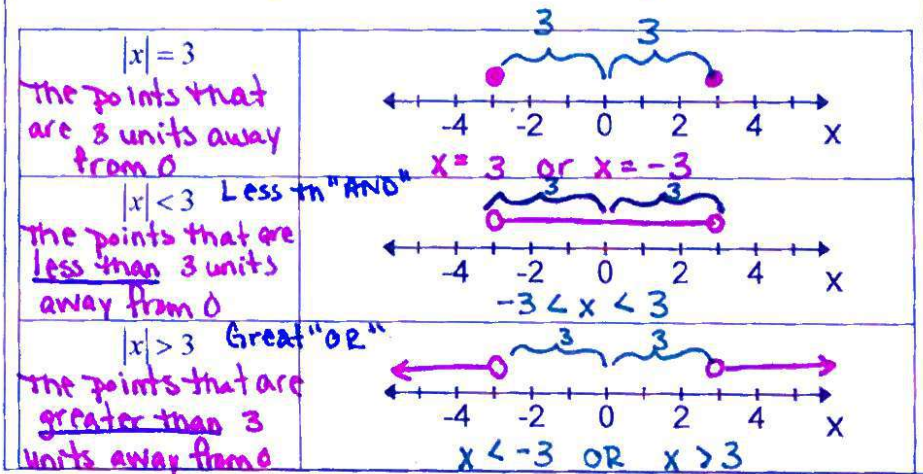 |x| = 3
The points that
are 3 units away
from 0
3 3
-4 -2 0 2 4 x
x = 3 or x = -3
|x| < 3 Less th "AND"
The points that are
less than 3 units
away from 0
3 3
-4 -2 0 2 4 x
-3 < x < 3
|x| > 3 Great "OR"
The points that are
greater than 3
units away from 0
3 3
-4 -2 0 2 4 x
x < -3 OR x > 3